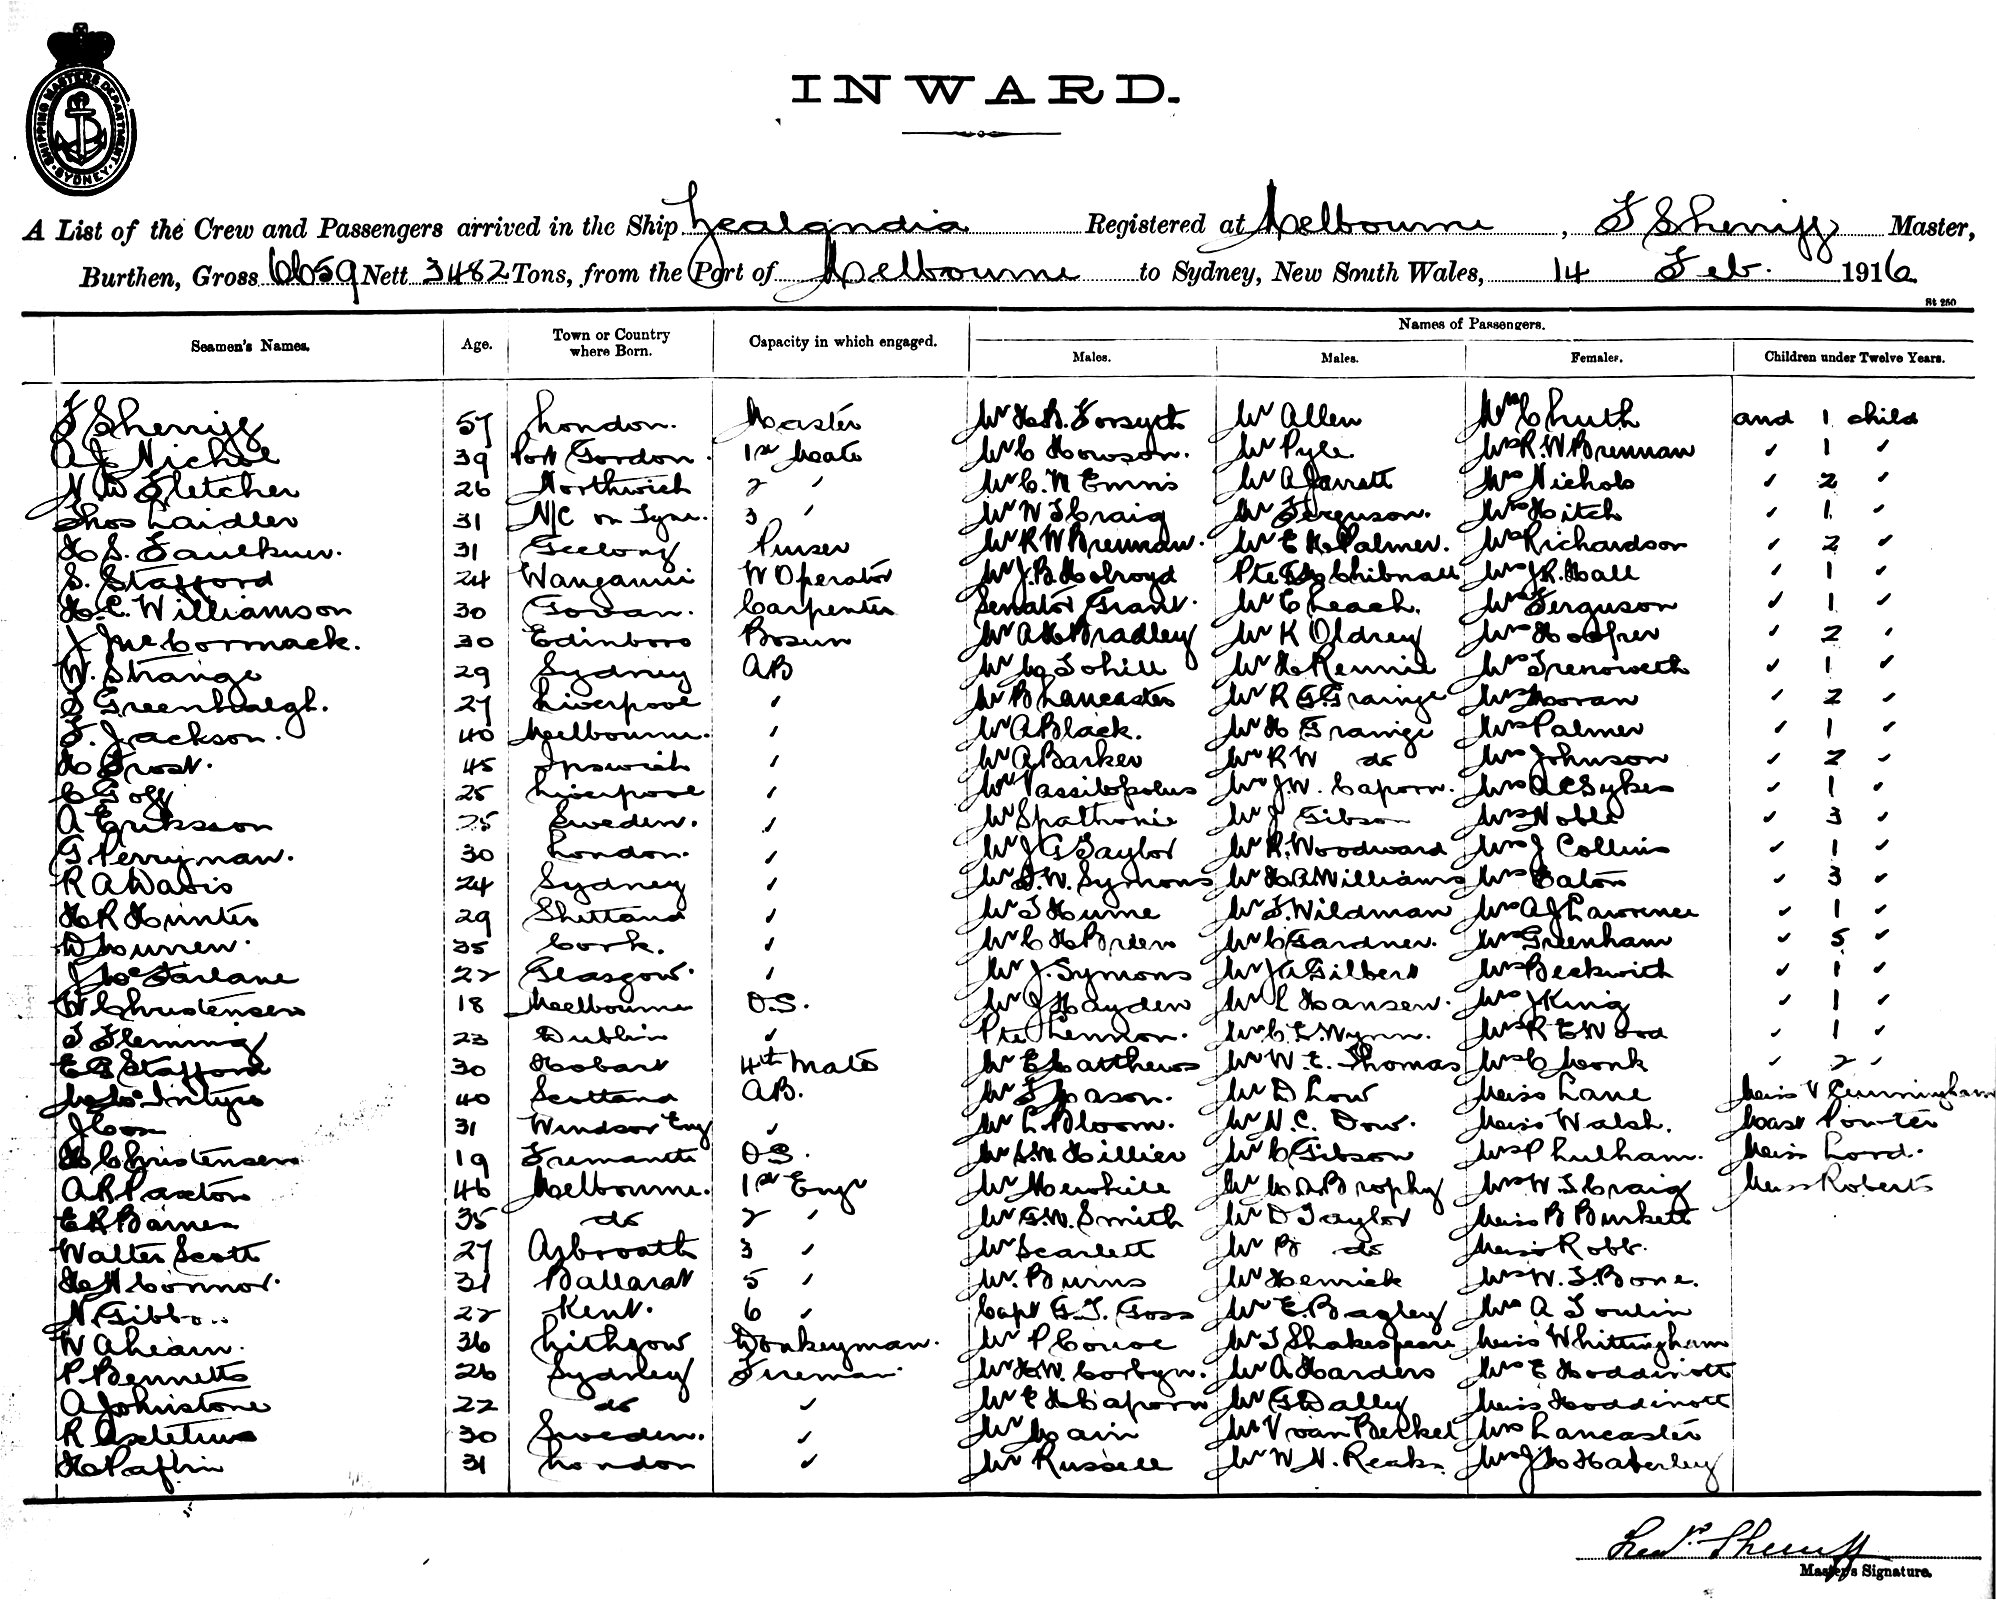 SHIPPING MASTERS DEPARTMENT
SYDNEY
INWARD.
A List of the Crew and Passengers arrived in the Ship Zealandia Registered at Melbourne, F Sherriff Master,
Burthen, Gross 6659 Nett 3482 Tons, from the Port of Melbourne to Sydney, New South Wales, 14 Feb. 1916
St 250
Names of Passengers.
Seamen's Names. Age. Town or Country where Born. Capacity in which engaged. Males. Males. Females. Children under Twelve Years.
F Sherriff 57 London. Master Mr H.B. Forsyth Mr Allen Mrs Chuth and 1 child
A J Nichol 39 Port Gordon. 1st Mate Mr C Howson. Mr Pyle Mrs R.W Brennan " 1 "
N W Fletcher 26 Northwich 2 " Mr C. N Ennis Mr A Jarrett Mrs Nichols " 2 "
Thos Laidler 31 N/C on Tyne. 3 " Mr W J Craig Mr Ferguson. Mrs Hitch " 1 "
H S. Faulkner. 31 Geelong Purser Mr R W Brennan. Mr E H Palmer. Mrs Richardson " 2 "
S. Stafford 24 Wanganui W Operator Mr J.B Holroyd Pte Chibnall Mrs J.R. Hall " 1 "
H. C. Williamson 30 Govan. Carpenter Senator Grant. Mr C Leach. Mrs Ferguson " 1 "
J McCormack. 30 Edinboro Bosun Mr A H Bradley Mr K Oldrey Mrs Hooper " 2 "
W. Strange 29 Sydney AB Mr M Tohill Mr H Rennie Mrs Trenoweth " 1 "
S Greenhalgh. 27 Liverpool " Mr B Lancaster Mr R G. Grainge Mrs Moran " 2 "
F. Jackson. 40 Melbourne. " Mr A Black. Mr H Grainge Mrs Palmer " 1 "
H Frost. 45 Ipswich " Mr A Barker Mr R W do Mrs Johnson " 2 "
C Goff 25 Liverpool " Mr Vassilopolus Mr J.W. Caporn. Mrs A C Sykes " 1 "
A Eriksson 25 Sweden. " Mr Spathonie Mr J Gibson Mrs Noble " 3 "
G Perryman. 30 London. " Mr J G Taylor Mr R. Woodward Mrs J Collins " 1 "
R A Davis 24 Sydney " Mr S.W. Symons Mr H A Williams Mrs Eaton " 3 "
H R Hunter 29 Shetland " Mr T Hume Mr F. Wildman Mrs A J Lawrence " 1 "
D 35 Cork. " Mr C H Brien Mr C Gardner. Mrs Greenham " 5 "
J McFarlane 22 Glasgow. " Mr J. Symons Mr J A Gilbert Mrs Beckwith " 1 "
W Christensen 18 Melbourne O.S. Mr J Hayden Mr L Hansen. Mrs J King " 1 "
T Fleming 23 Dublin " Pte Lennon. Mr C E. Wynn. Mrs R E Wood " 1 "
E G Stafford 30 Hobart 4th Mate Mr E Matthews Mr W. E. Thomas Mrs C Monk " 2 "
M McIntyre 40 Scotland A.B. Mr F Mason. Mr D Low Miss Lane Miss V Cunningham
J Cox 31 Windsor Eng " Mr L Bloom. Mr N. C. Dow. Miss Walsh. Mast Pointer
H Christensen 19 Fremantle O.S. Mr S.W Hillier Mr C Gibson Mrs P Lulham. Miss Lord.
A B Paxton 46 Melbourne. 1st Engr Mr Newhill Mr M A Brophy Mrs W. J. Craig Miss Roberts
E R Barnes 35 do 2 " Mr G.W. Smith Mr D Taylor Miss B Burkett
Walter Scott 27 Arbroath 3 " Mr Scarlett Mr B do Miss Robb.
H N Connor. 31 Ballarat 5 " Mr. Burns Mr Henrick Mrs W. J. Bone.
N. Gibb 22 Kent. 6 " Capt G. T. Goss Mr E. Bagley Mrs A Toulin
W Ahearn. 36 Lithgow Donkeyman. Mr P Mr T Shakespeare Miss Whittingham
P Bennetts 26 Sydney Fireman Mr H.W. Corbyn. Mr A Harders Mrs E Hoddinott
A Johnstone 22 do " Mr E H Caporn Mr G Dally Miss Hoddinott
R 30 Sweden. " Mr Cain Mr V van Beckel Mrs Lancaster
H Paflin 31 London " Mr Russell Mr W N. Reaks Mrs J Haberley
Fredk. Sherriff
Master's Signature.